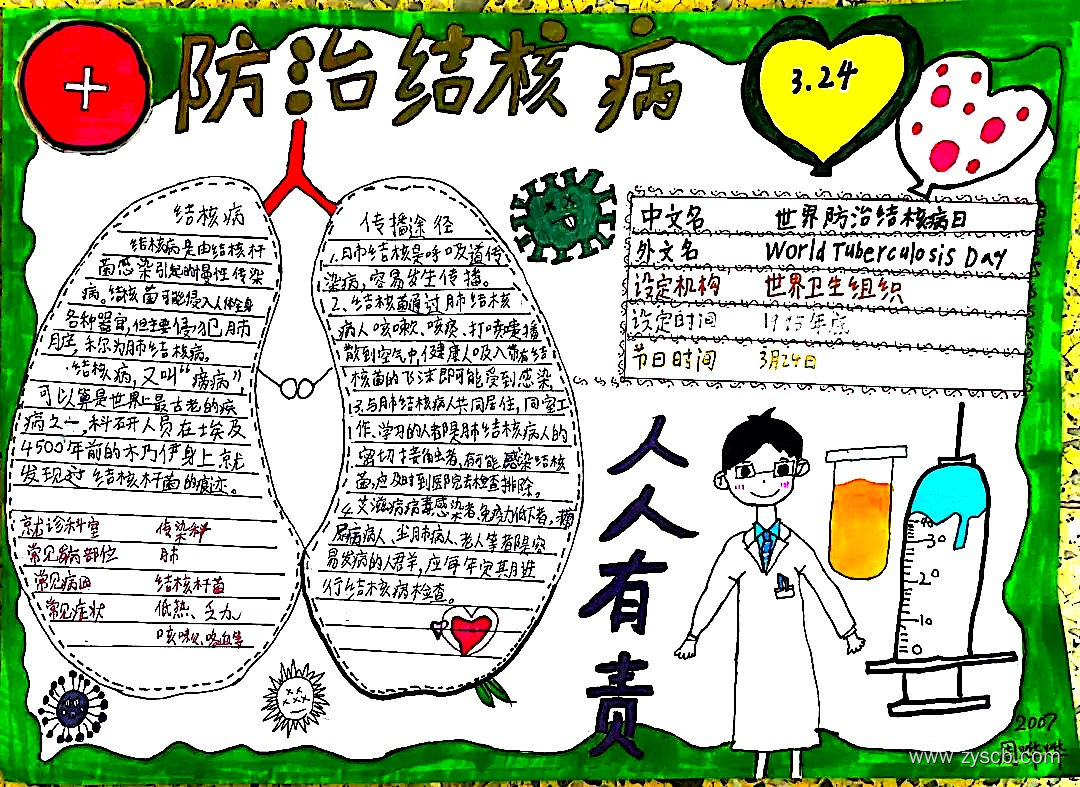 防治结核病
3.24
结核病
结核病是由结核杆
菌感染引起的慢性传染
病。结核菌可能侵入人体全身
各种器官,但主要侵犯肺
脏,称为肺结核病。
结核病,又叫“痨病”,
可以算是世界上最古老的疾
病之一,科研人员在埃及
4500年前的木乃伊身上就
发现过结核杆菌的痕迹。
就诊科室 传染科
常见发病部位 肺
常见病因 结核杆菌
常见症状 低热、乏力
咳嗽、咯血等
传播途径
1.肺结核是呼吸道传
染病,容易发生传播。
2、结核菌通过肺结核
病人咳嗽、咳痰、打喷嚏播
散到空气中,健康人吸入带有结
核菌的飞沫即可能受到感染,
3.与肺结核病人共同居住,同室工
作、学习的人都是肺结核病人的
密切接触者,有可能感染结核
菌,应及时到医院去检查排除。
4.艾滋病病毒感染者,免疫力低下者,糖
尿病病人、尘肺病人、老人等都是容
易发病的人群,应每年定期进
行结核病检查。
中文名 世界防治结核病日
外文名 World Tuberculosis Day
设定机构 世界卫生组织
设定时间 1995年底
节日时间 3月24日
人
人
有
责
40
30
20
10
0
2007
www.zyscb.com